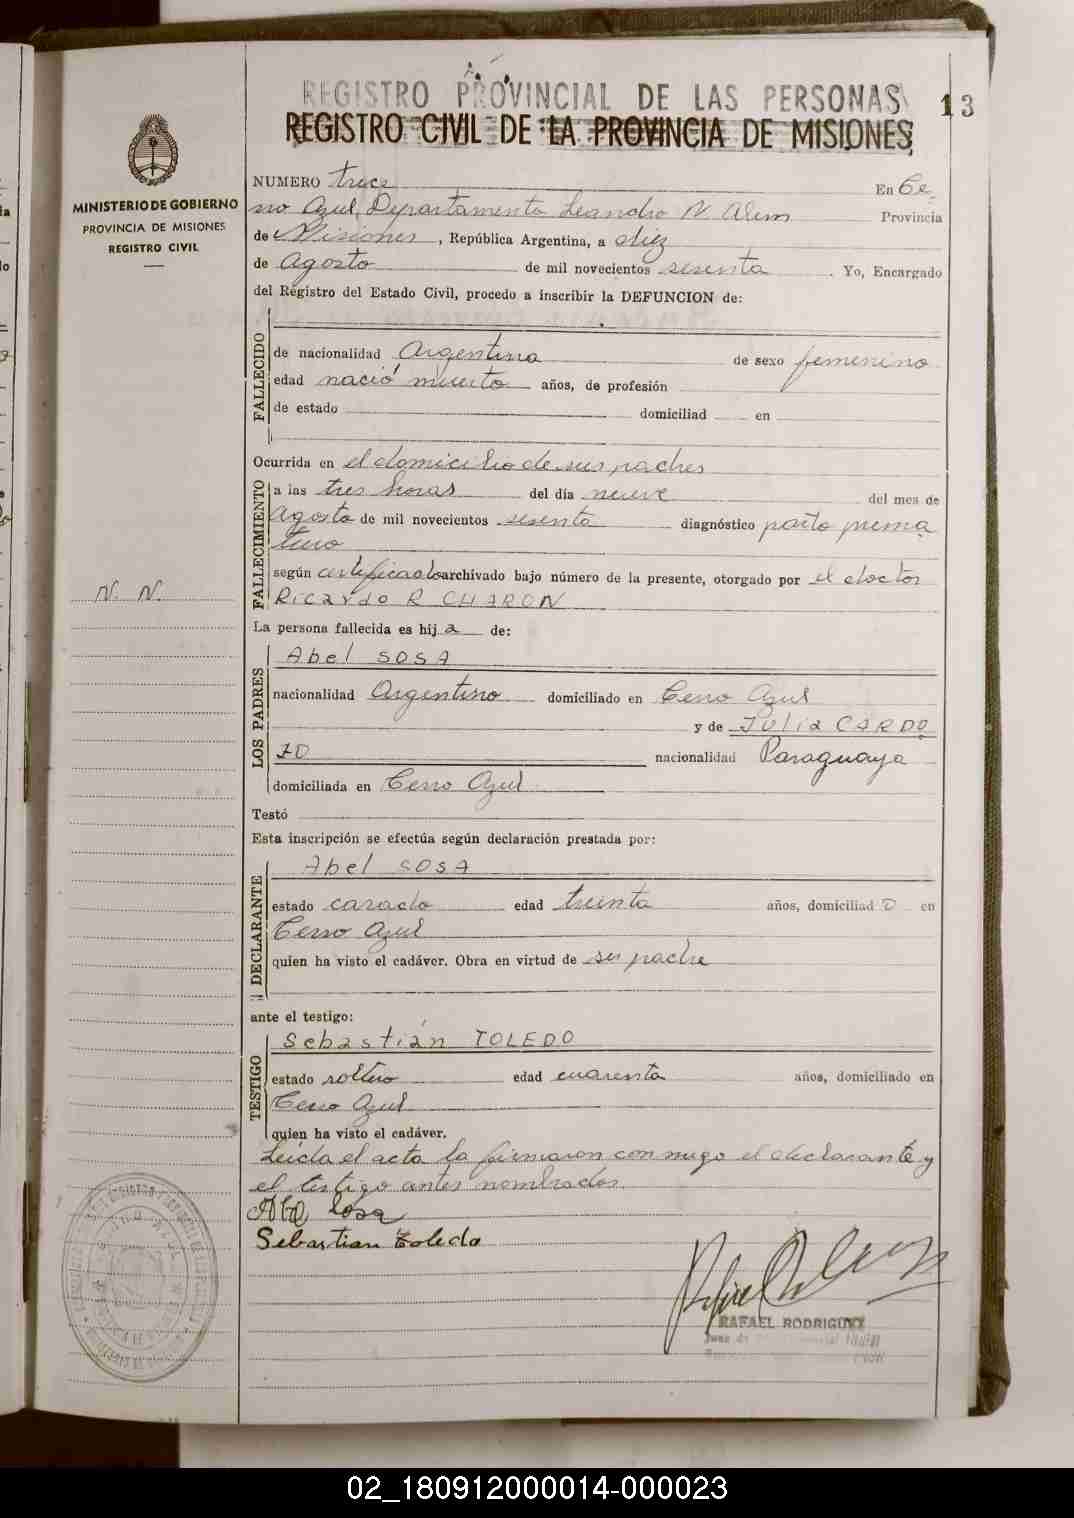 REGISTRO PROVINCIAL DE LAS PERSONAS
REGISTRO CIVIL DE LA PROVINCIA DE MISIONES
13
MINISTERIO DE GOBIERNO
PROVINCIA DE MISIONES
REGISTRO CIVIL
N. N.
NUMERO trece En Ce-
rro Azul, Departamento Leandro N. Alem Provincia
de Misiones, República Argentina, a diez
de Agosto de mil novecientos sesenta. Yo, Encargado
del Registro del Estado Civil, procedo a inscribir la DEFUNCION de:
FALLECIDO
de nacionalidad Argentina de sexo femenino
edad nació muerto años, de profesión
de estado domiciliad en
Ocurrida en el domicilio de sus padres
FALLECIMIENTO
a las tres horas del día nueve del mes de
Agosto de mil novecientos sesenta diagnóstico parto prema
turo
según certificado archivado bajo número de la presente, otorgado por el doctor
Ricardo R CHARON
La persona fallecida es hija de:
LOS PADRES
Abel SOSA
nacionalidad Argentino domiciliado en Cerro Azul
y de Julia CARDO
ZO nacionalidad Paraguaya
domiciliada en Cerro Azul
Testó
Esta inscripción se efectúa según declaración prestada por:
DECLARANTE
Abel SOSA
estado casado edad treinta años, domiciliado en
Cerro Azul
quien ha visto el cadáver. Obra en virtud de su padre
ante el testigo:
TESTIGO
Sebastián TOLEDO
estado soltero edad cuarenta años, domiciliado en
Cerro Azul
quien ha visto el cadáver.
Leída el acta la firmaron conmigo el declarante y
el testigo antes nombrados.
Abel Sosa
Sebastian Toledo
RAFAEL RODRIGUEZ
02_180912000014-000023